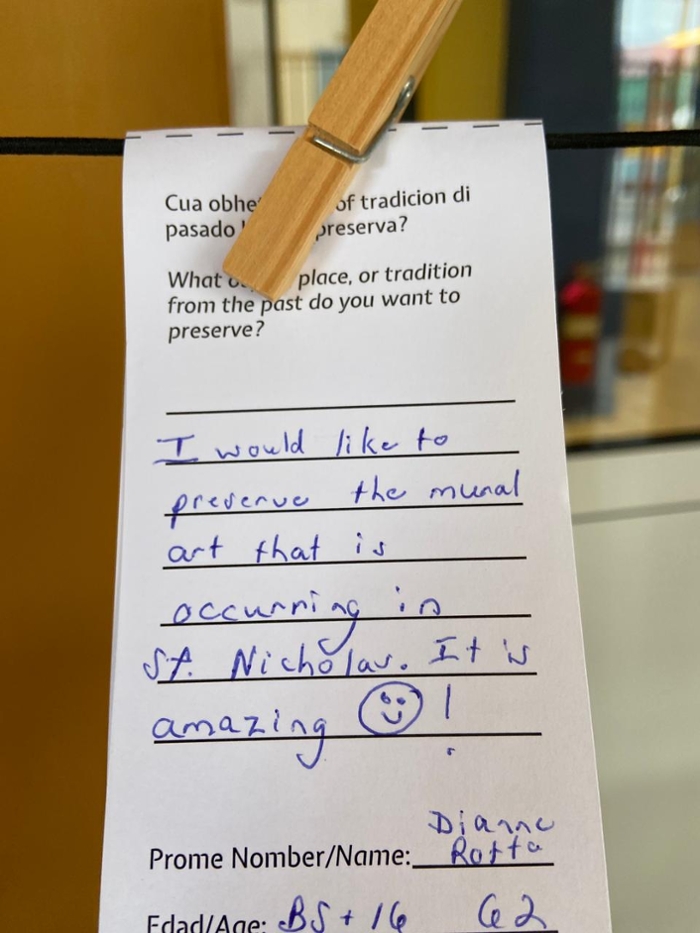 Cua of tradicion di
pasado preserva?
What place, or tradition
from the past do you want to
preserve?
I would like to
preserve the mural
art that is
occurring in
St. Nicholas. It is
amazing !
Prome Nomber/Name: Dianne
Rotta
Edad/Age: BS + 16 62